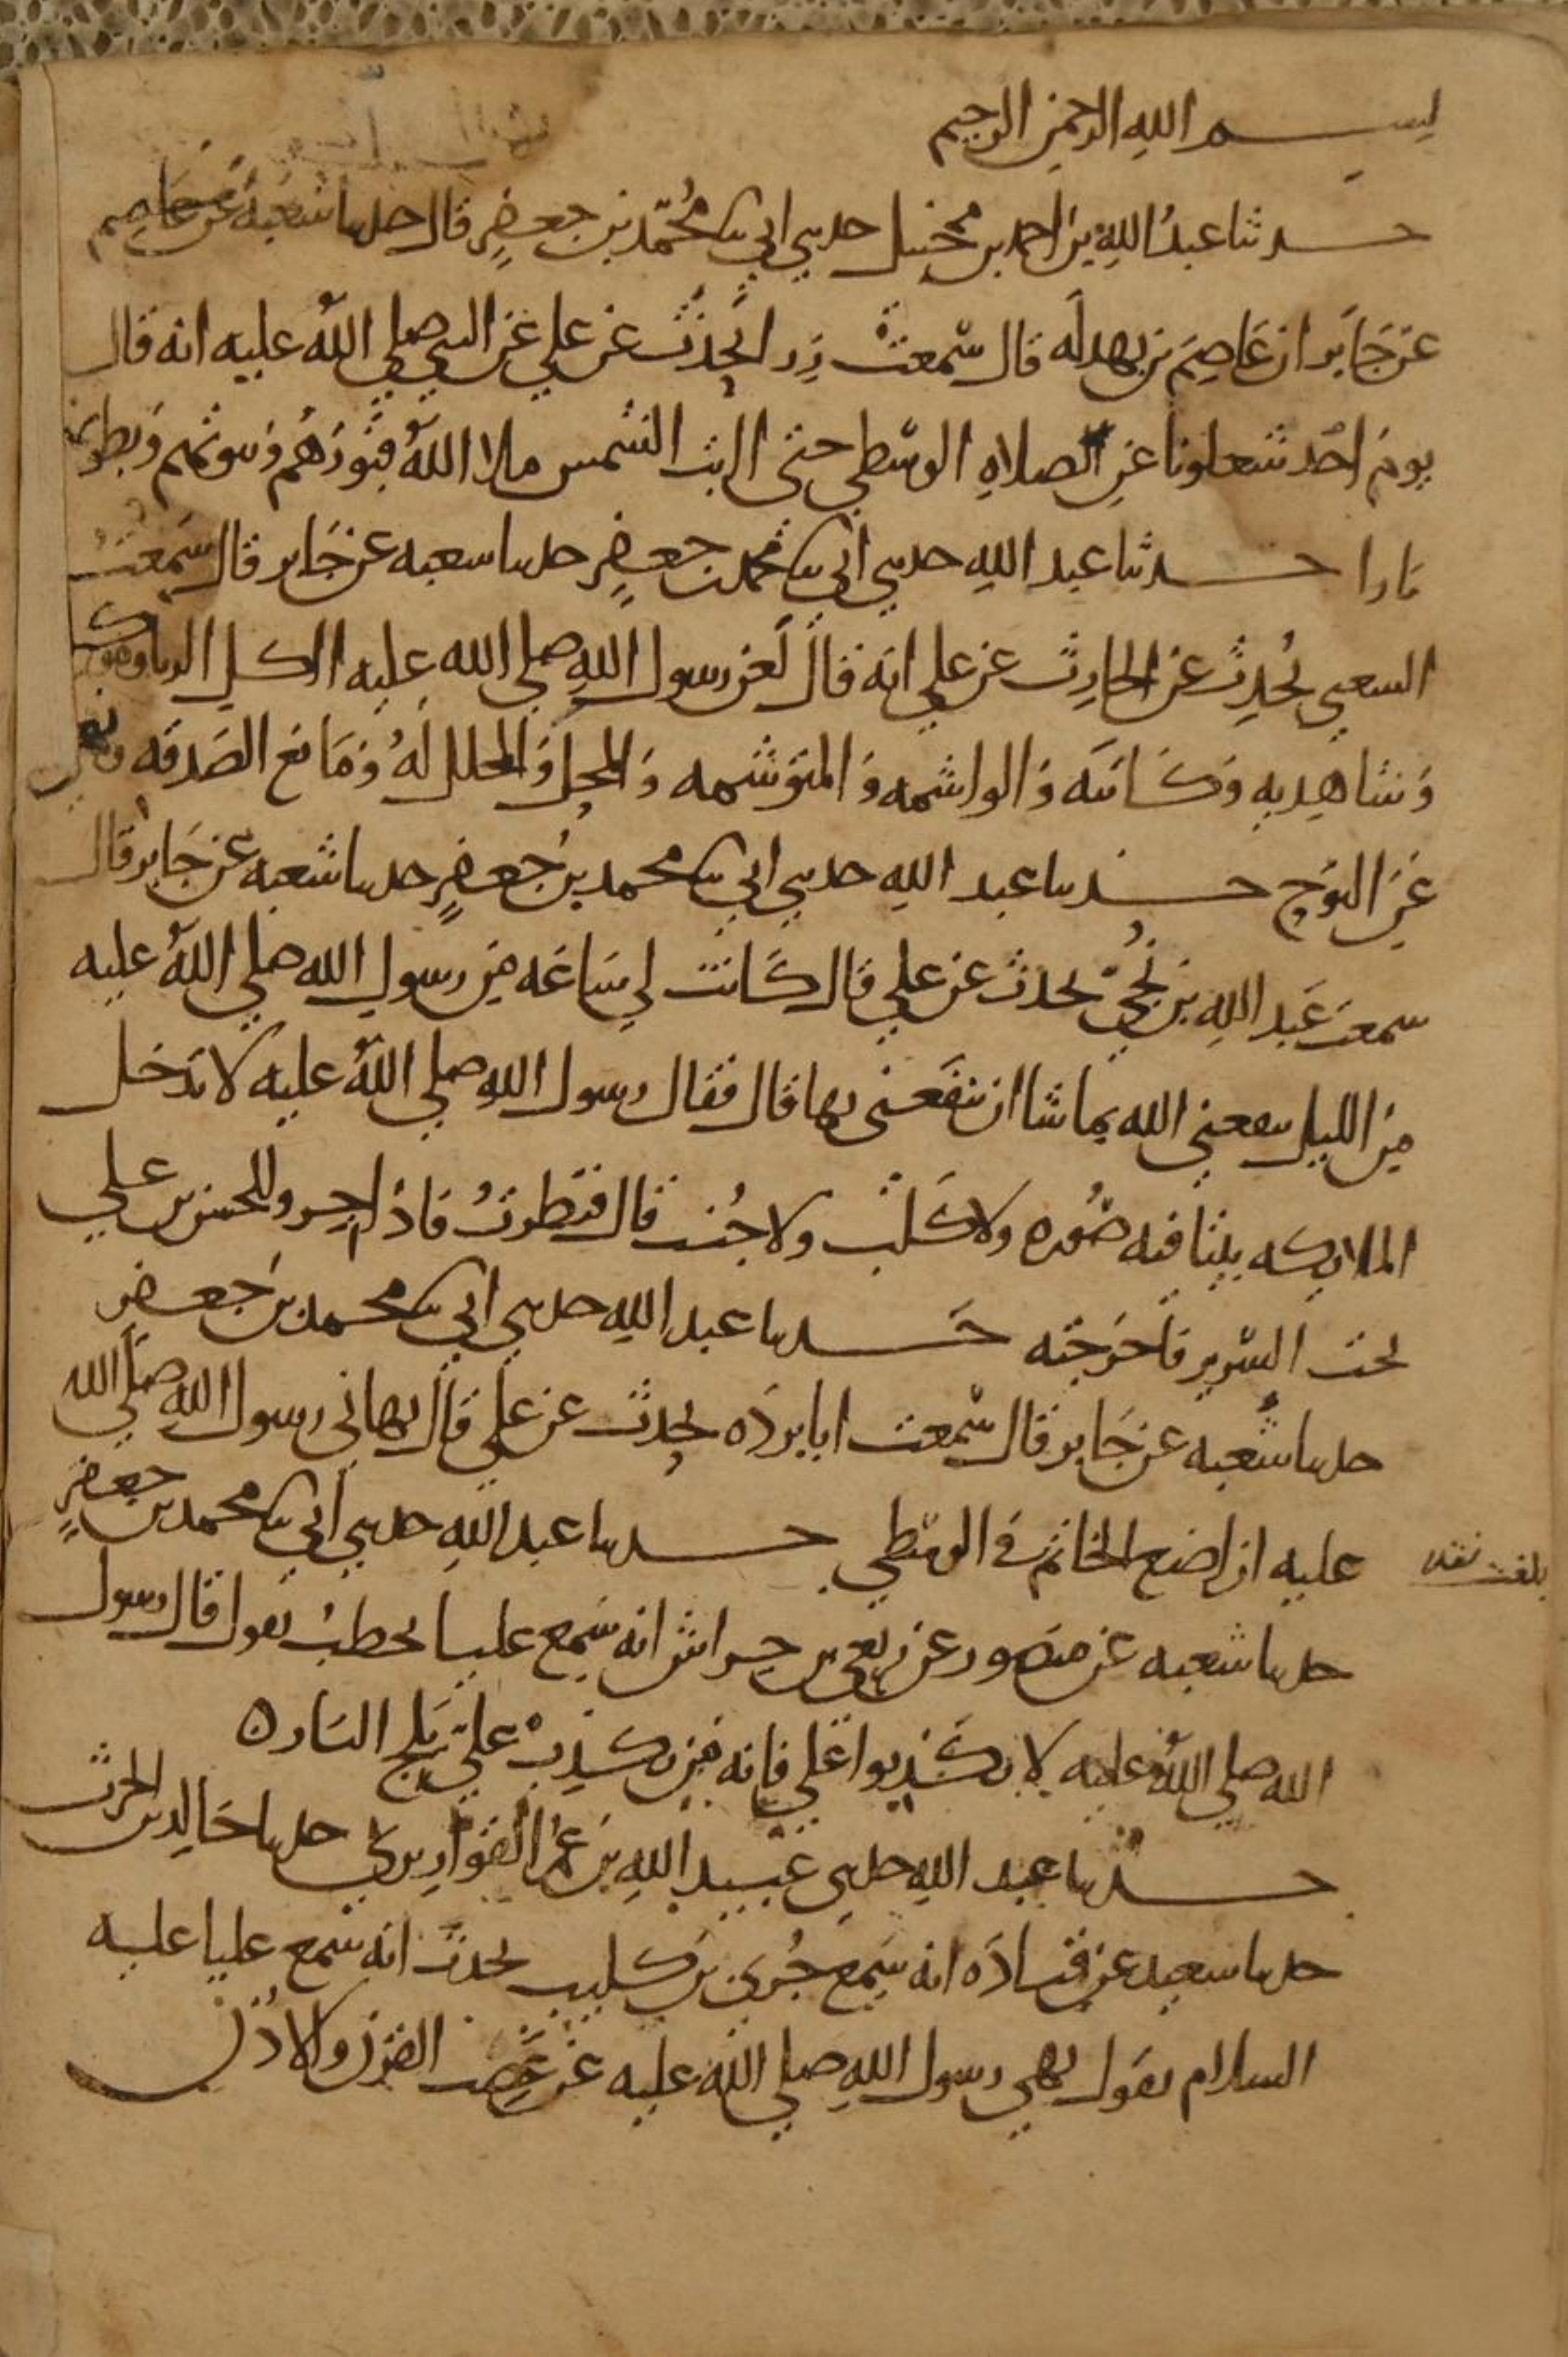 بسم الله الرحمن الرحيم
حدثنا عبد الله بن احمد بن محمد بن حنبل حدثني ابي ثنا محمد بن جعفر قال حدثنا شعبة عن عاصم
عن جابر ان عاصم بن بهدله قال سمعت زر ا يحدث عن علي عن النبي صلي الله عليه انه قال
يوم احد شغلونا عن الصلاه الوسطي حتى ابت الشمس ملا الله قبورهم وبيوتهم وبطونهم
نارا حدثنا عبد الله حدثني ابي ثنا محمد بن جعفر حدثنا شعبه عن جابر قال سمعت
الشعبي يحدث عن الحارث عن علي انه قال لعن رسول الله صلي الله عليه اكل الربا وموكله
وشاهديه وكاتبه والواشمه والمتوشمه والمحل والمحلل له ومانع الصدقه ونهى
عن النوح حدثنا عبد الله حدثني ابي ثنا محمد بن جعفر حدثنا شعبه عن جابر قال
سمعت عبد الله بن نجي يحدث عن علي قال كانت لي ساعه من رسول الله صلي الله عليه
من الليل ينفعني الله بما شا ان ينفعني بها قال فقال رسول الله صلي الله عليه لا تدخل
الملايكه بيتا فيه صوره ولا كلب ولا جنب قال فنظرت فاذا جرو للحسن بن علي
تحت السرير فاخرجته حدثنا عبد الله حدثني ابي ثنا محمد بن جعفر
حدثنا شعبه عن جابر قال سمعت ابا برده يحدث عن علي قال نهاني رسول الله صلي الله
عليه ان اضع الخاتم في الوسطي حدثنا عبد الله حدثني ابي ثنا محمد بن جعفر
حدثنا شعبه عن منصور عن ربعي بن حراش انه سمع عليا يخطب يقول قال رسول
الله صلي الله عليه لا تكذبوا علي فانه من يكذب علي يلج النار ه
حدثنا عبد الله حدثني عبيد الله بن عمر القواريري حدثنا خالد بن الحرث
حدثنا سعيد عن قتاده انه سمع جري بن كليب يحدث انه سمع عليا عليه
السلام يقول نهي رسول الله صلي الله عليه عن عضب القرن والاذن